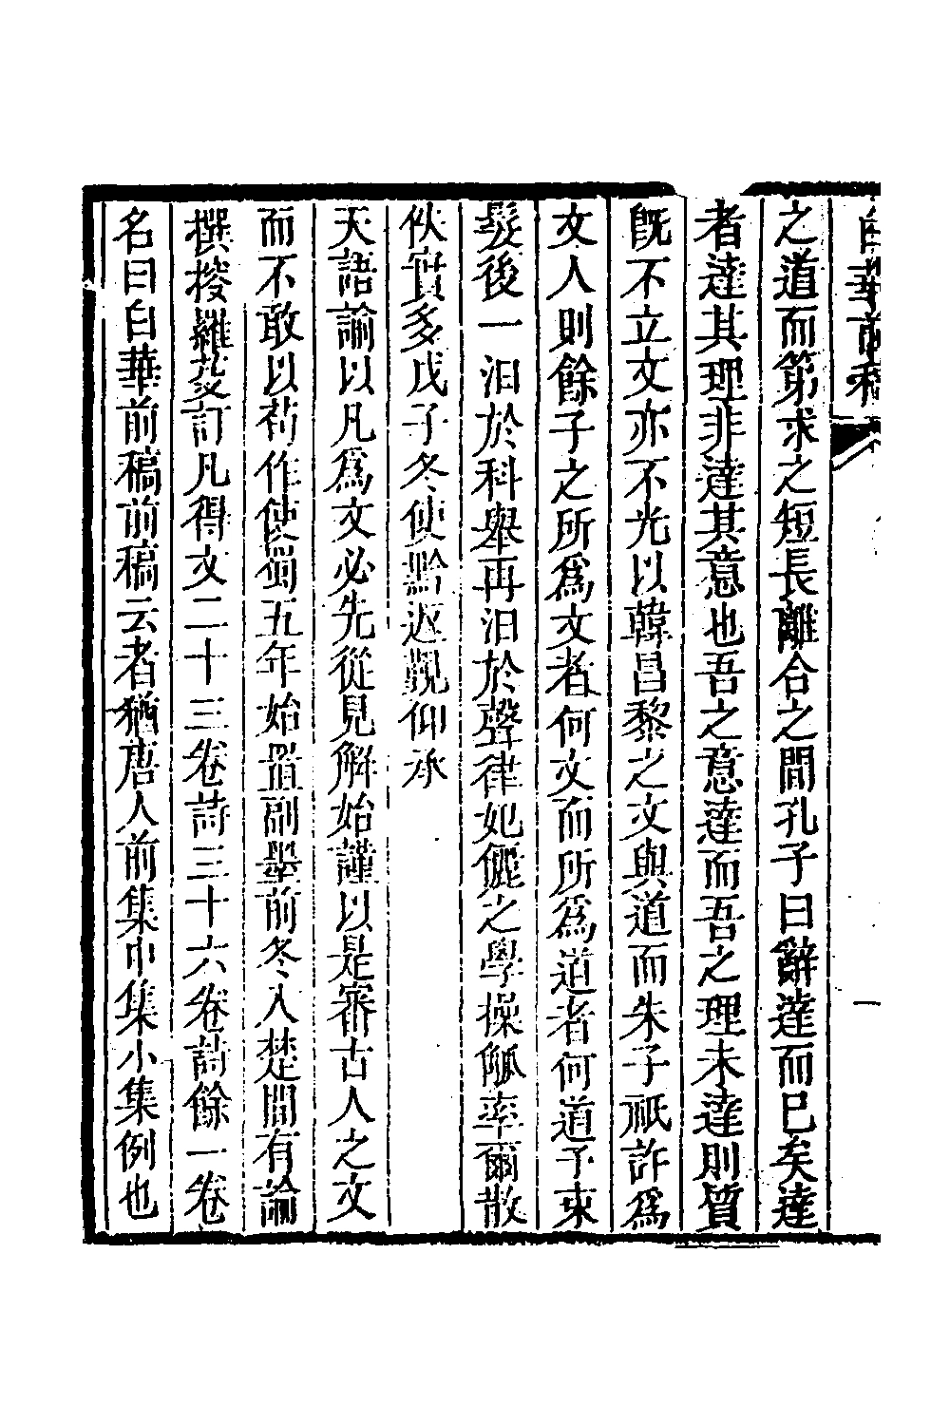 白華前稿
一
之道而第求之短長離合之間孔子曰辭達而已矣達
者達其理非達其意也吾之意達而吾之理未達則質
既不立文亦不光以韓昌黎之文與道而朱子祇許爲
文人則餘子之所爲文者何文而所爲道者何道予束
髮後一汩於科舉再汩於聲律妃儷之學操觚率爾散
佚實多戊子冬使黔返覲仰承
天語諭以凡爲文必先從見解始謹以是審古人之文
而不敢以苟作使蜀五年始置副墨前冬入楚間有論
撰挍羅芟訂凡得文二十三卷詩三十六卷詩餘一卷
名曰白華前稿前稿云者猶唐人前集中集小集例也